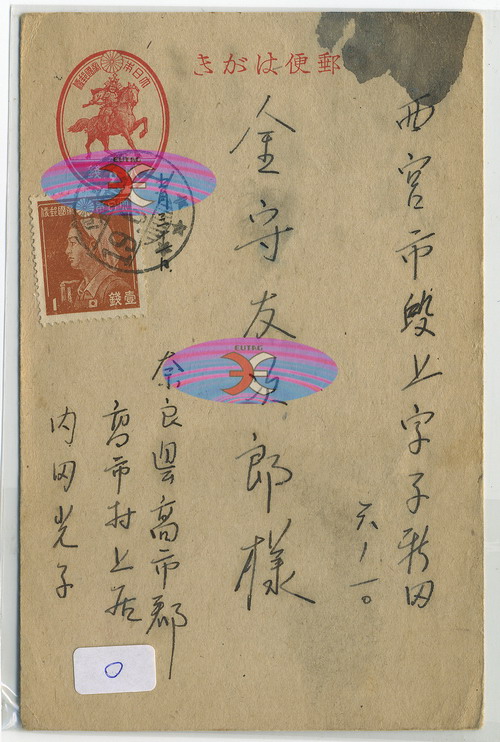 郵便はがき
大日本帝國郵便
西宮市段上字子新田
六ノ一〇
金守友
郎様
大日本帝國郵便
1
壹錢
奈良県高市郡
高市村上居
内田光子
EUTAC
EUTAC
0